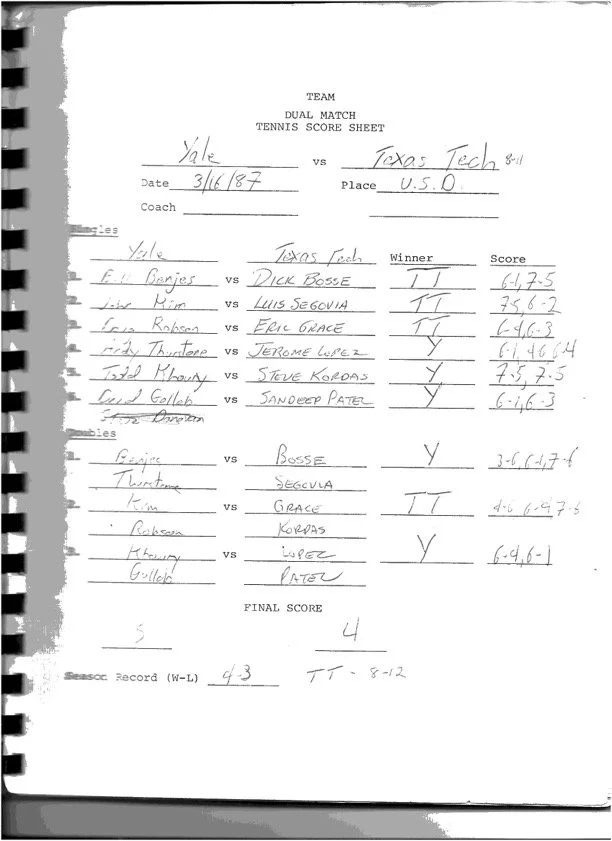 TEAM
DUAL MATCH
TENNIS SCORE SHEET
Yale vs Texas Tech 8-11
Date 3/16/87 Place U.S.D.
Coach
Singles
Yale Texas Tech Winner Score
Benjes vs DICK BOSSE TT 6-1, 7-5
Kim vs LUIS SEGOVIA TT 7-5, 6-2
Robson vs ERIC GRACE TT 6-4, 6-3
Thurstone vs JEROME LOPEZ Y 6-1, 4-6 6-4
Todd Khoury vs STEVE KORDAS Y 7-5, 7-5
David Gollob vs SANDEEP PATEL Y 6-1, 6-3
Donovan
Doubles
1. Benjes vs BOSSE Y 3-6, 6-1, 7-6
Thurstone SEGOVIA
2. Kim vs GRACE TT 4-6 6-4 7-5
Robson KORDAS
3. Khoury vs LOPEZ Y 6-4, 6-1
Gollob PATEL
FINAL SCORE
5 4
Season Record (W-L) 4-3 TT - 8-12